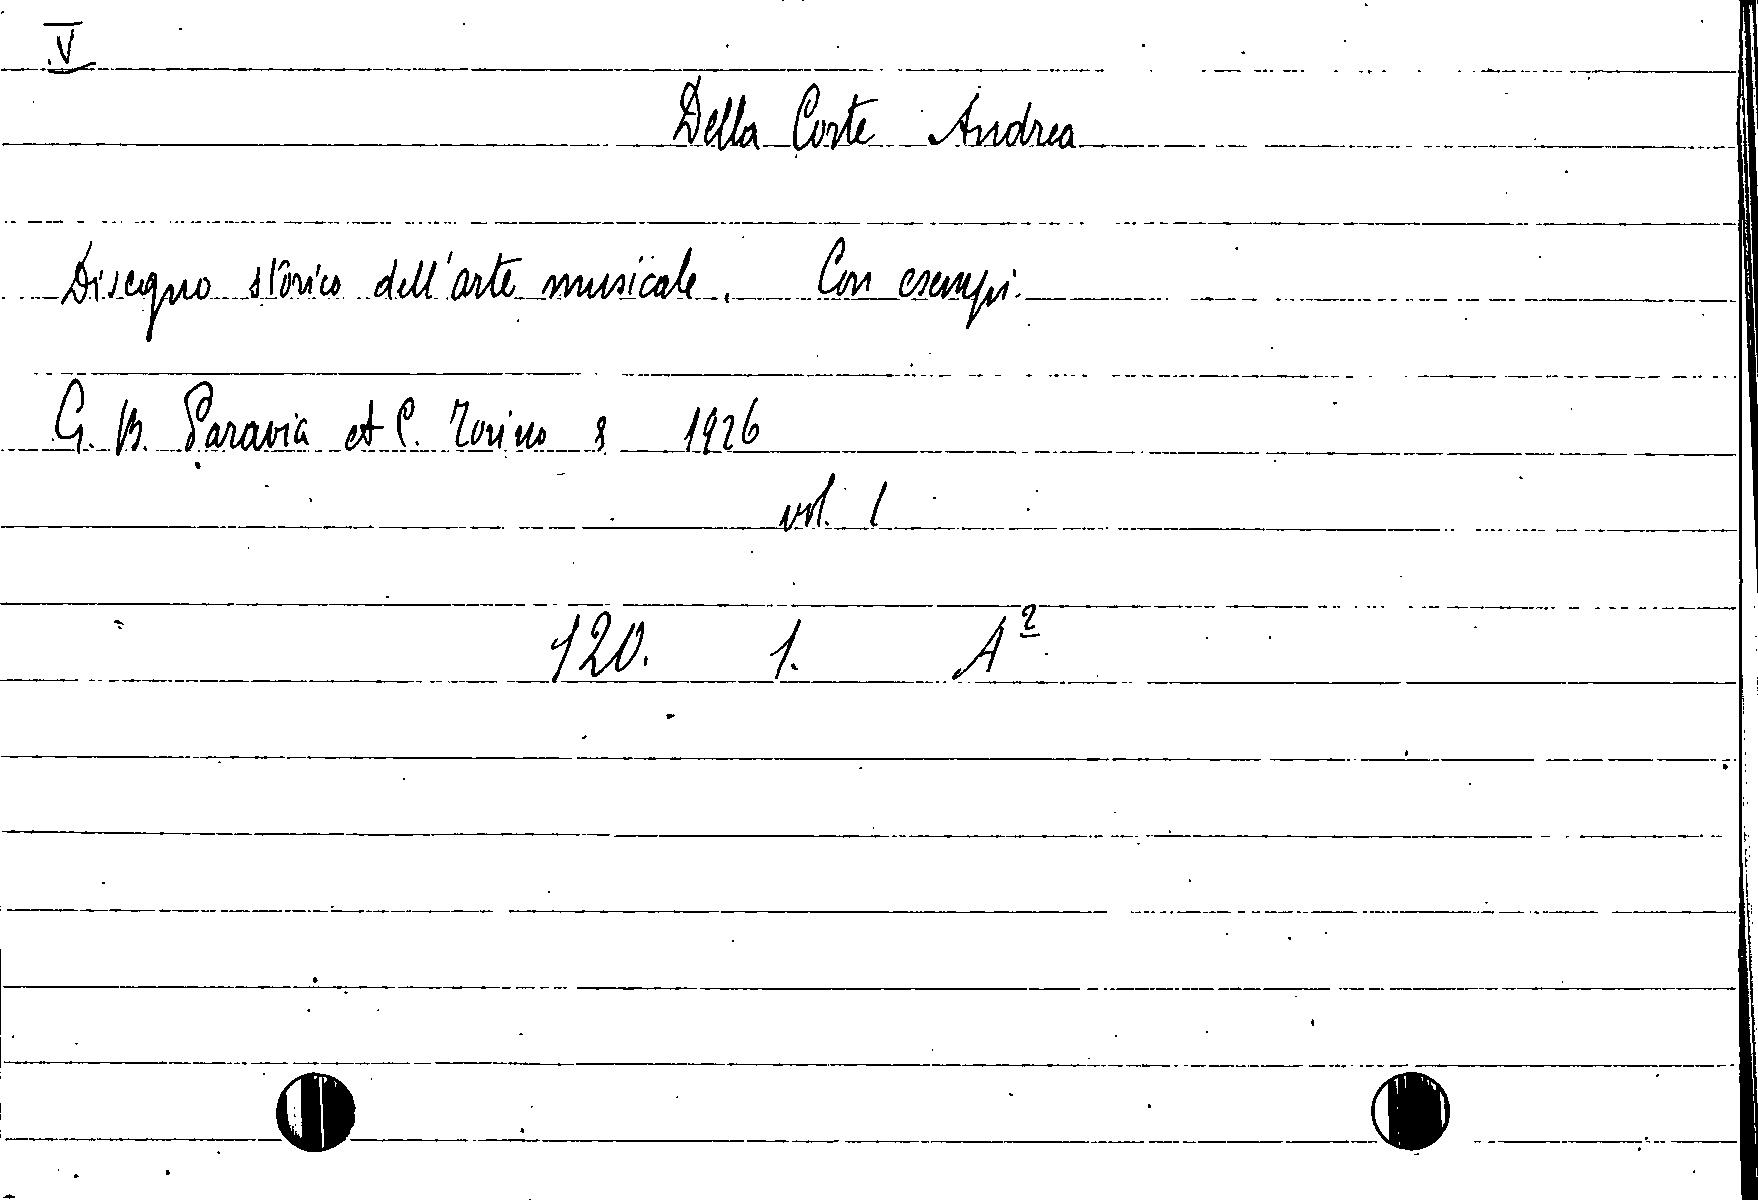 V
Della Corte Andrea
Disegno storico dell'arte musicale. Con esempi.
G. B. Paravia et C. Torino 8 1926
vol. 1
120. 1. A²